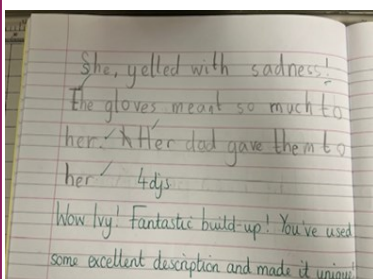 She, yelled with sadness!
The gloves meant so much to
her. Her dad gave them to
her 4djs
Wow Ivy! Fantastic build-up! You've used
some excellent description and made it unique